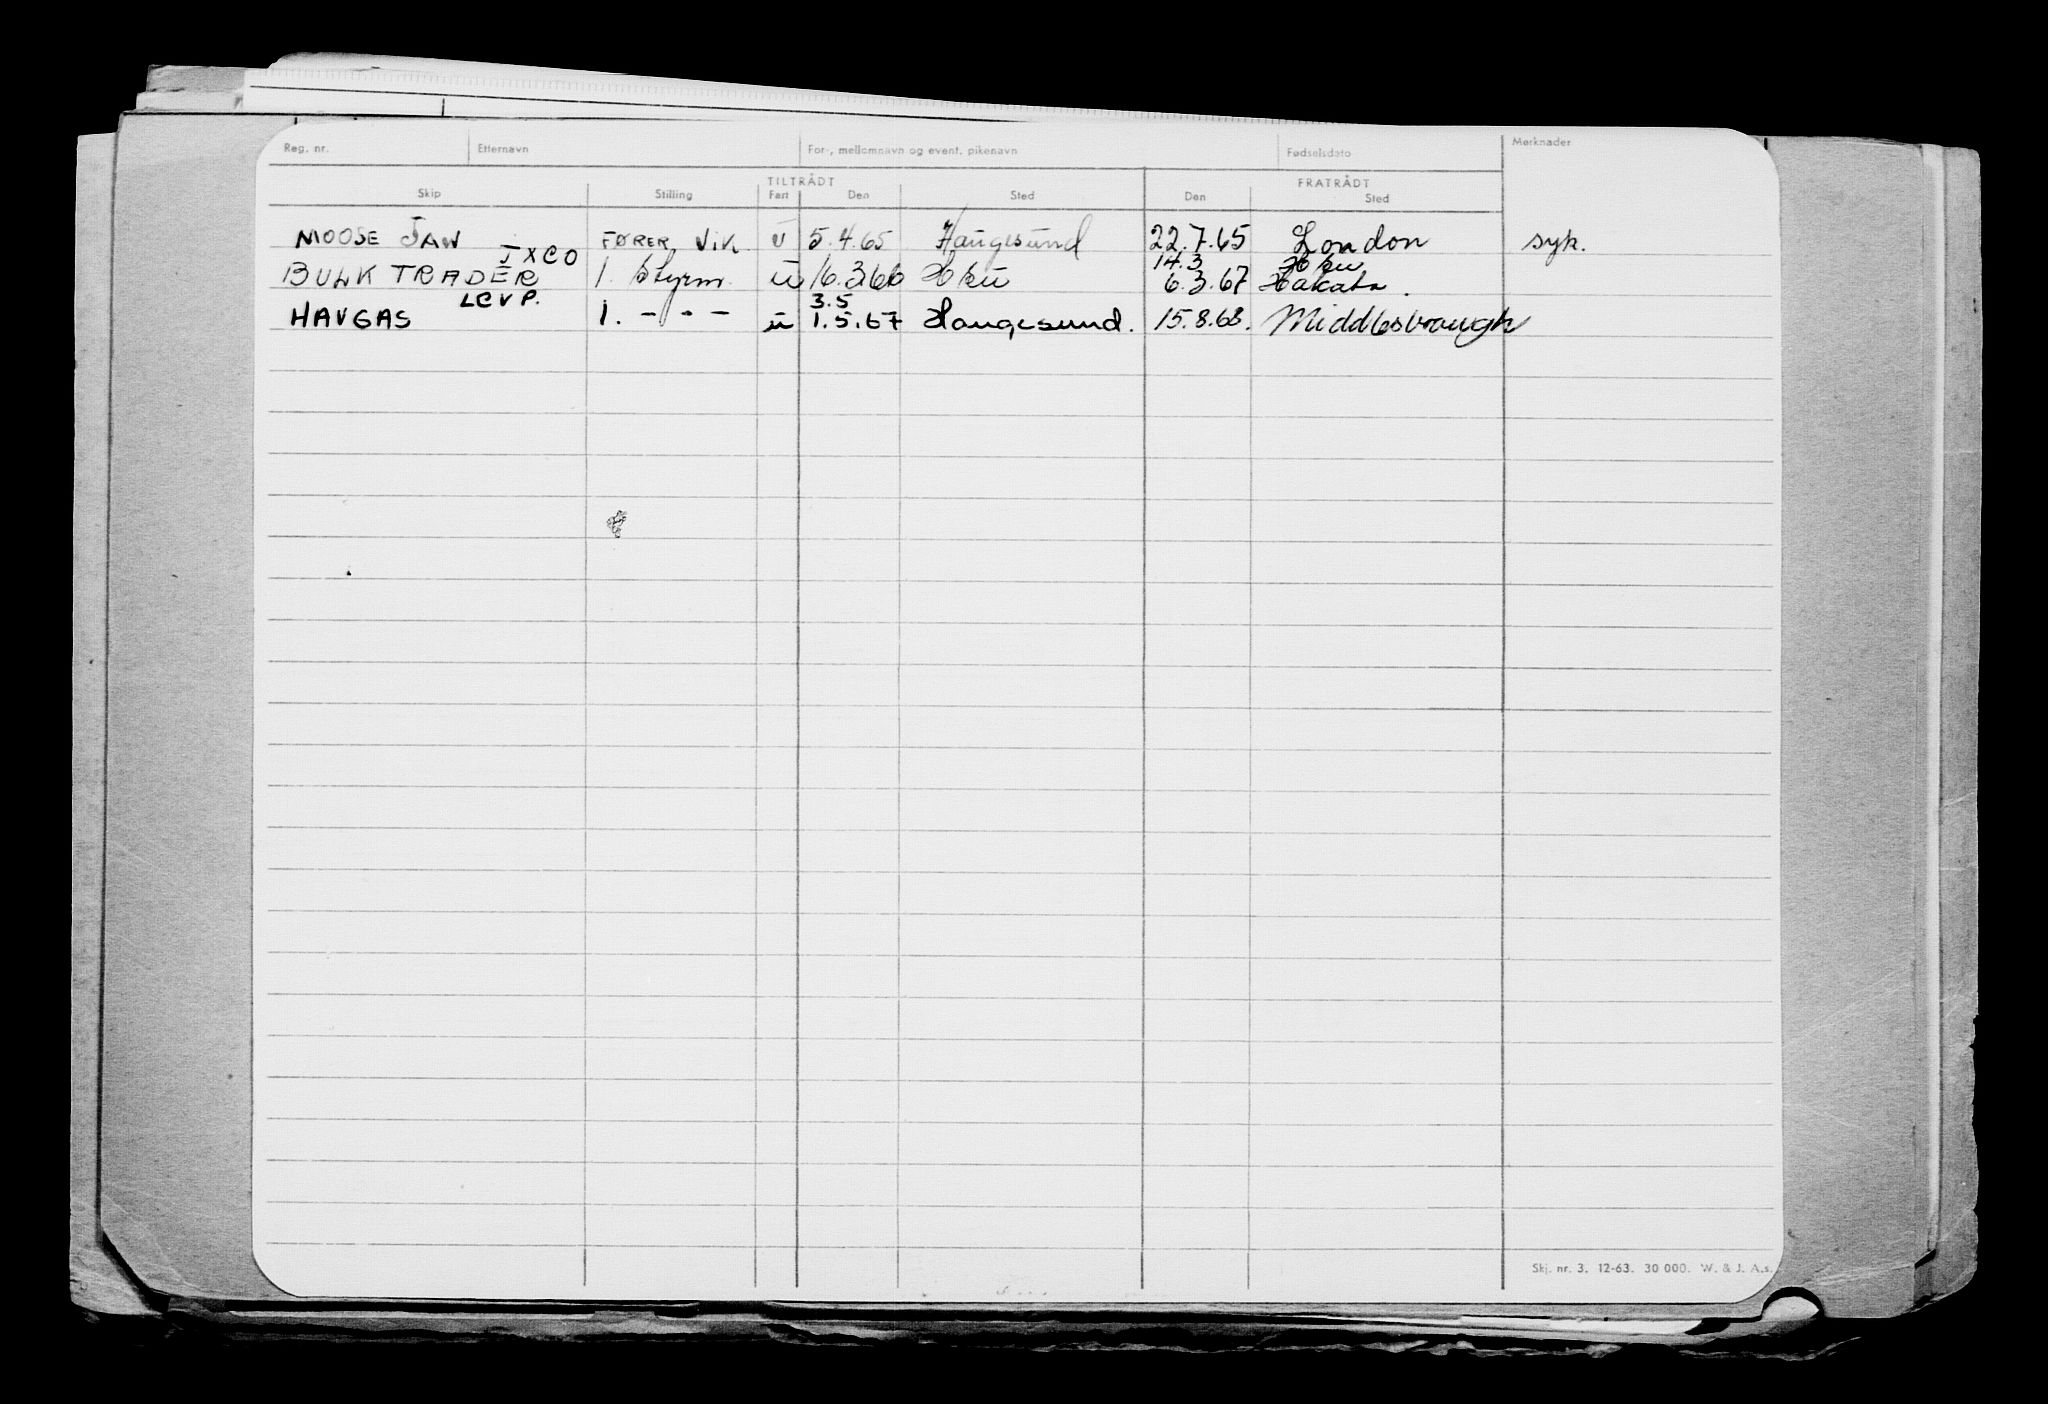 Reg. nr. Etternavn For-, mellomnavn og event. pikenavn Fødselsdato Merknader
TILTRÅDT FRATRÅDT
Skip Stilling Fart Den Sted Den Sted
MOOSE JAW FØRER, Vik. u 5.4.65 Haugesund 22.7.65 London syk.
JXCO 14.3 Hsu
BULK TRADER 1. Styrm. u 16.3.66 Hsu 6.3.67 Hakata.
LCVP. 3.5
HAVGAS 1. - - - u 1.5.67 Haugesund. 15.8.68. Middlesbrough
Skj. nr. 3. 12-63. 30 000. W. & J. A.s.